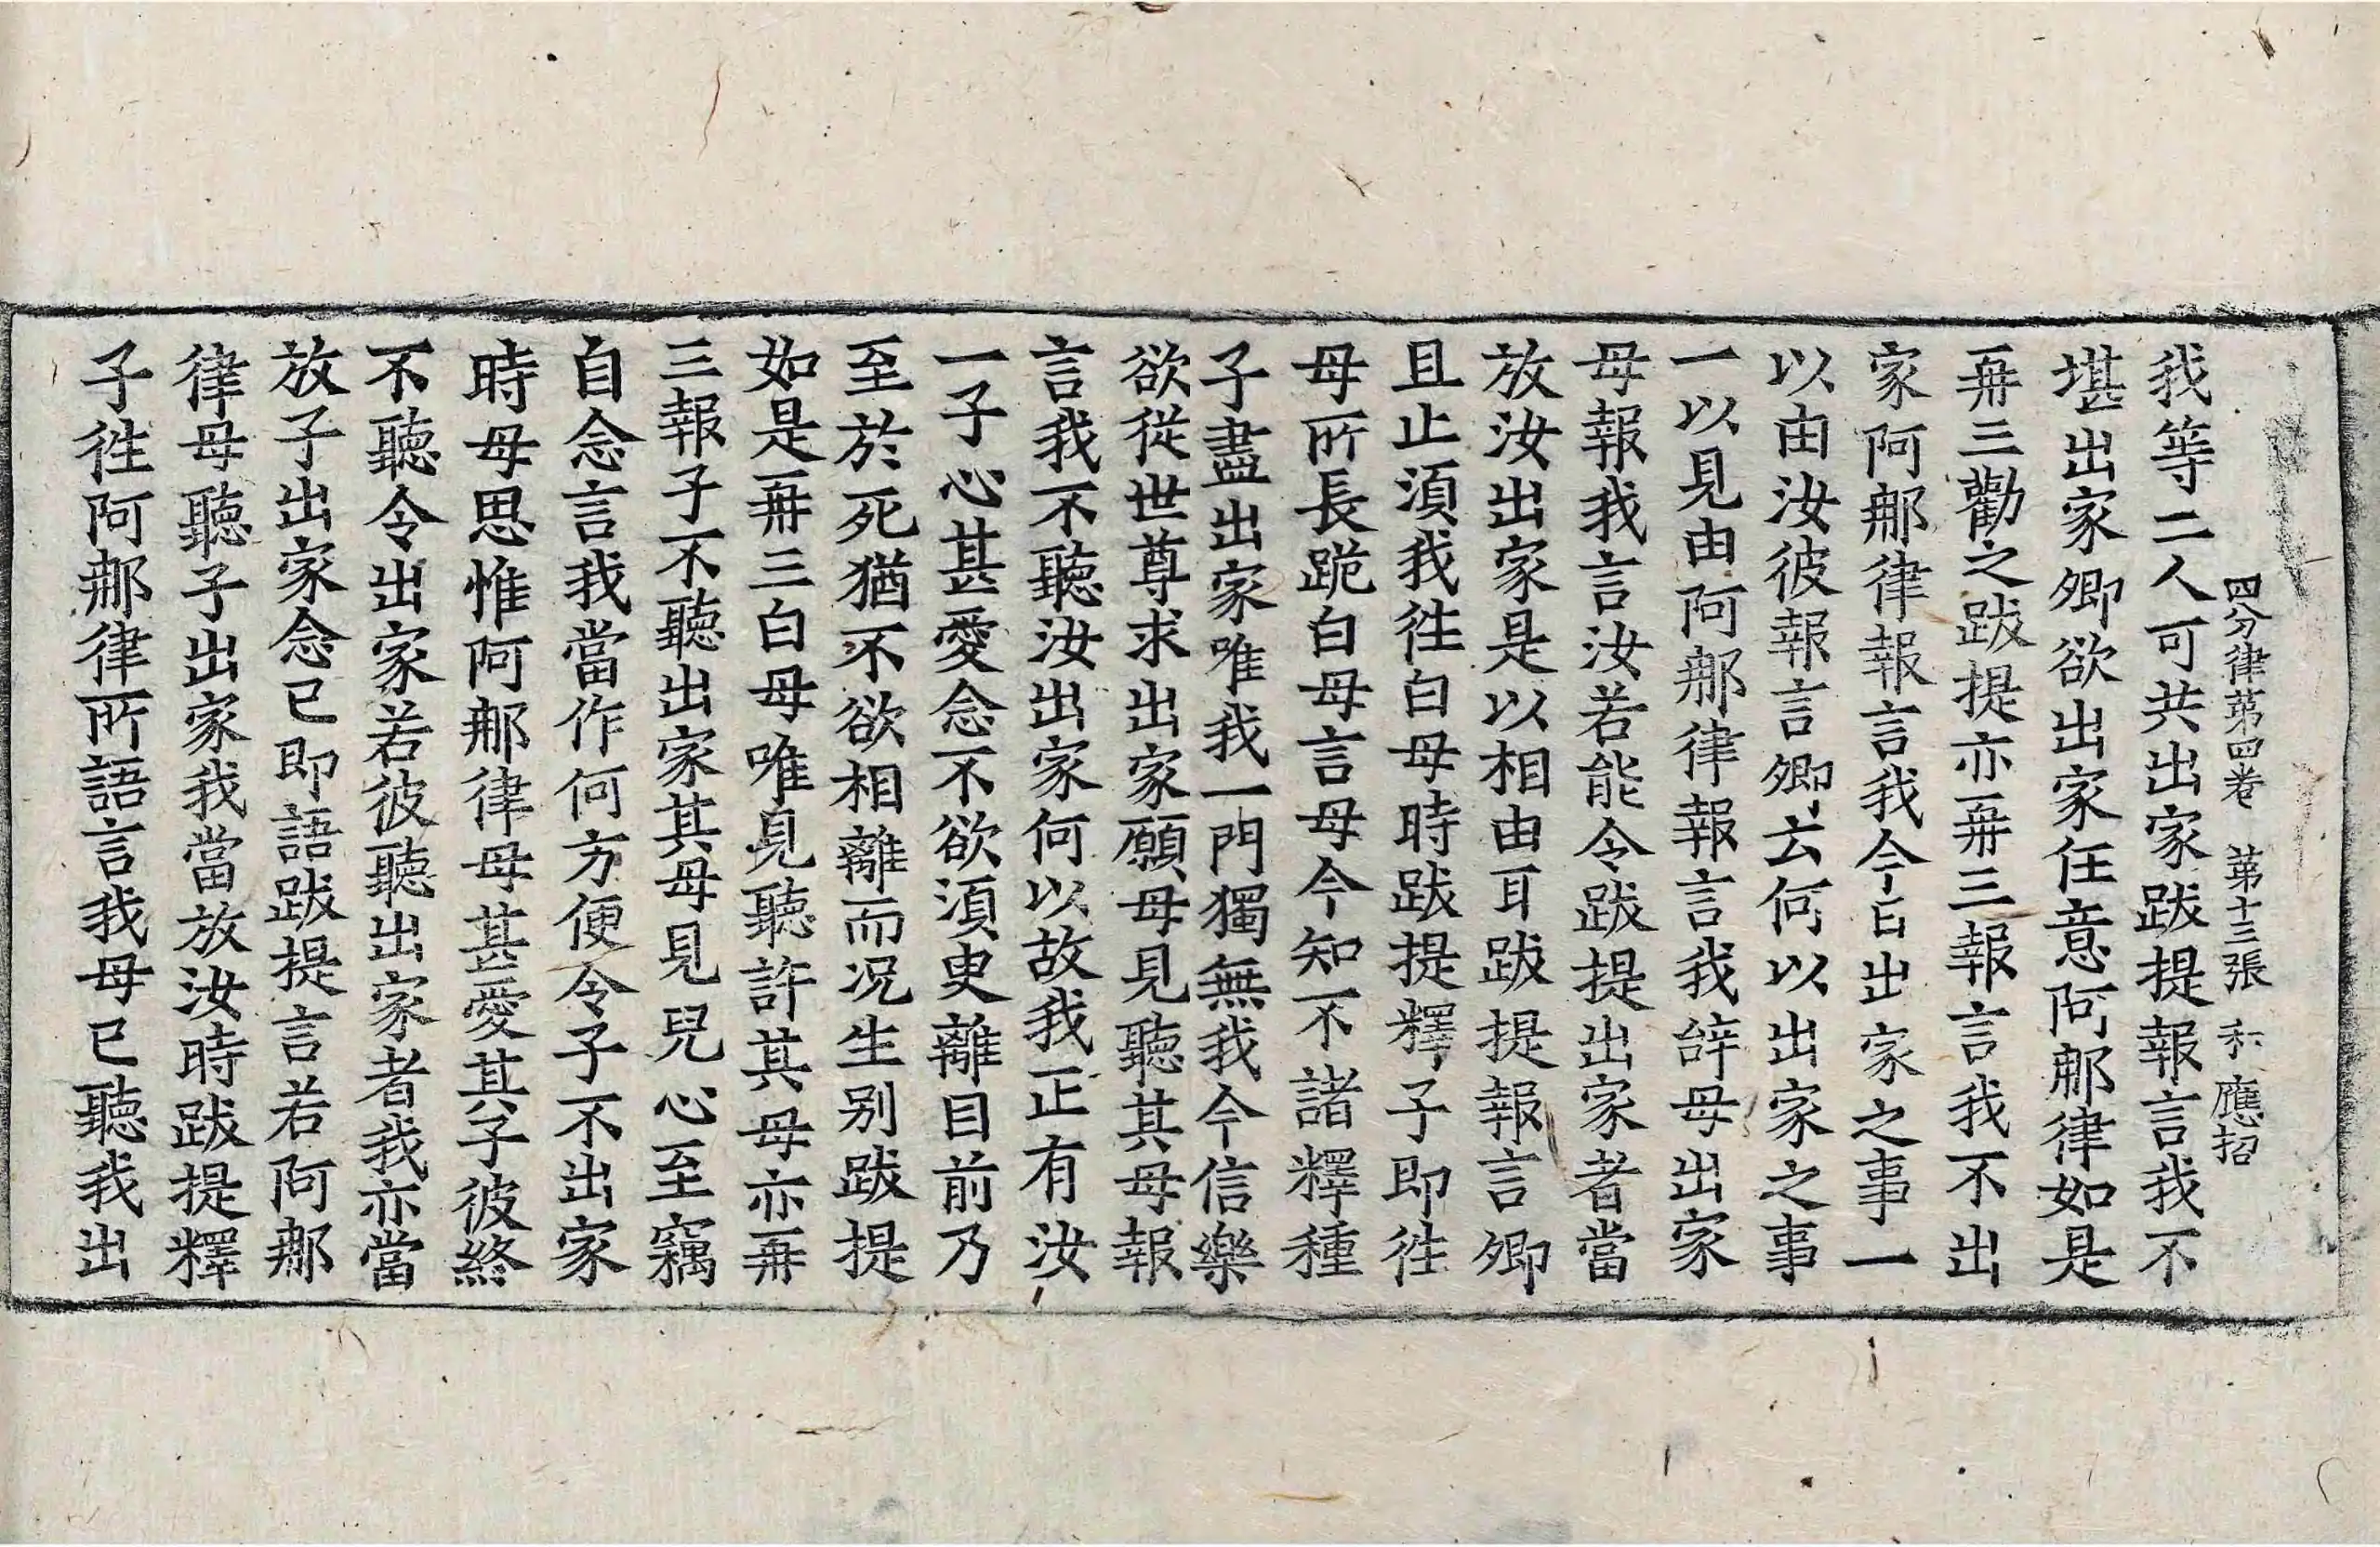 四分律第四卷 第十三張 和 應招
我等二人可共出家跋提報言我不
堪出家卿欲出家任意阿那律如是
再三勸之跋提亦再三報言我不出
家阿那律報言我今日出家之事一
以由汝彼報言卿云何以出家之事
一以見由阿那律報言我辞母出家
母報我言汝若能令跋提出家者當
放汝出家是以相由耳跋提報言卿
且止須我往白母時跋提釋子即往
母所長跪白母言母今知不諸釋種
子盡出家唯我一門獨無我今信樂
欲從世尊求出家願母見聽其母報
言我不聽汝出家何以故我正有汝
一子心甚愛念不欲須臾離目前乃
至於死猶不欲相離而况生別跋提
如是再三白母唯見聽許其母亦再
三報子不聽出家其母見兒心至竊
自念言我當作何方便令子不出家
時母思惟阿那律母甚愛其子彼終
不聽令出家若彼聽出家者我亦當
放子出家念已即語跋提言若阿那
律母聽子出家我當放汝時跋提釋
子往阿那律所語言我母已聽我出